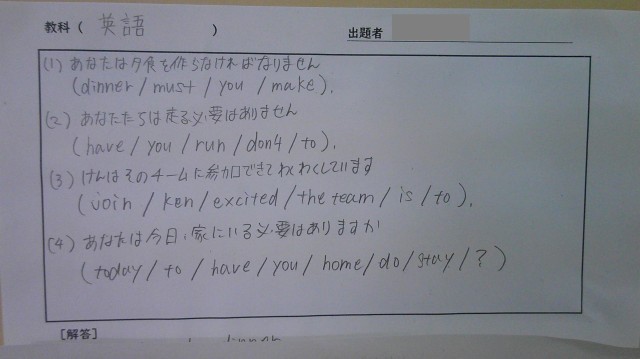 教科（ 英語 ）
出題者
(1) あなたは夕食を作らなければなりません
(dinner / must / you / make).
(2) あなたたちは走る必要はありません
(have / you / run / don't / to).
(3) けんはそのチームに参加できてわくわくしています
(join / ken / excited / the team / is / to).
(4) あなたは今日、家にいる必要はありますか
(today / to / have / you / home / do / stay / ? )
［解答］